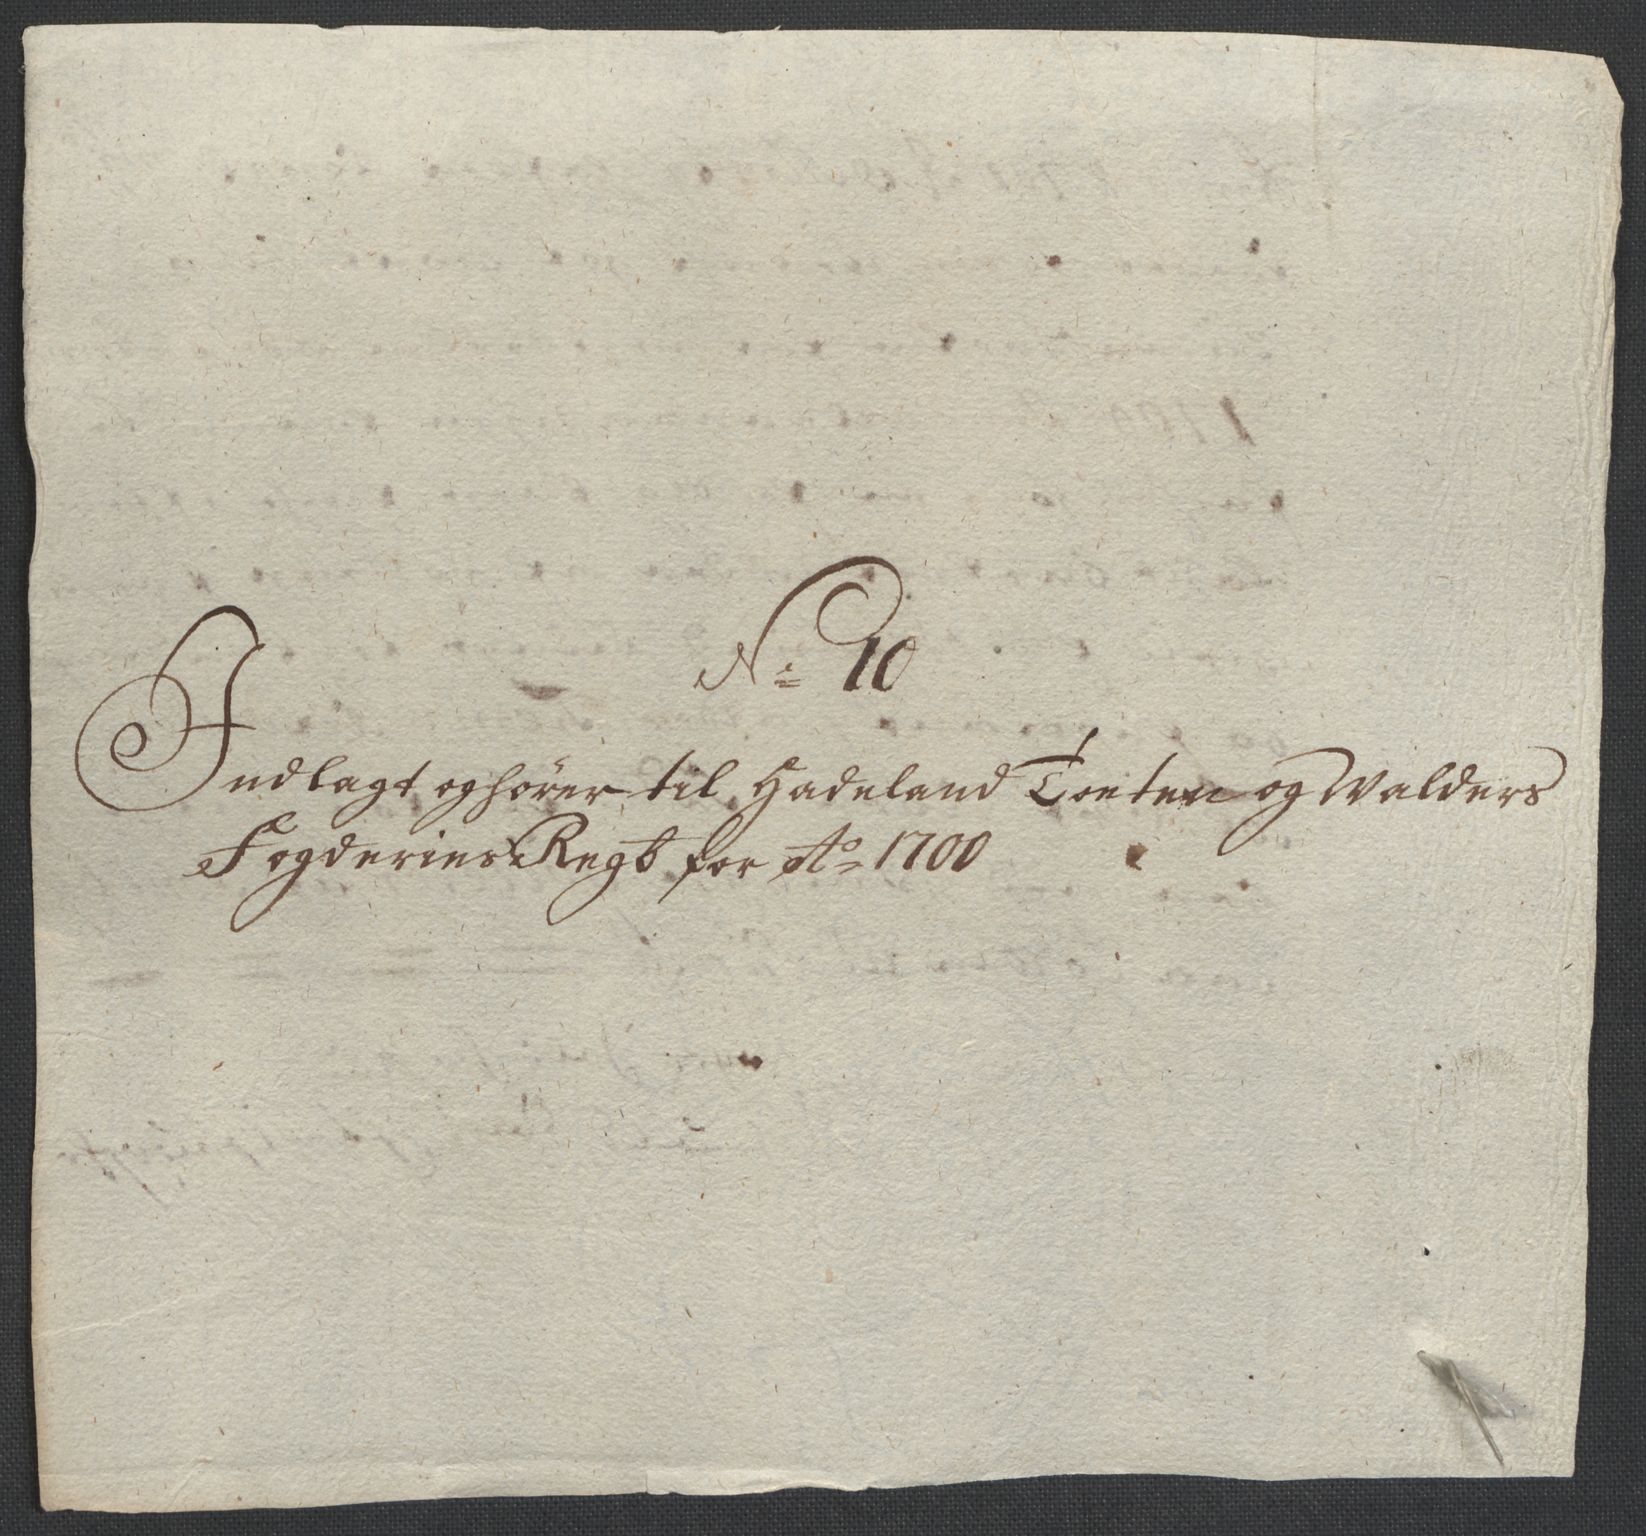 No 10
Indlagt og hører til Hadeland Toeten og Walders
Fogderies Regb for Ao 1700